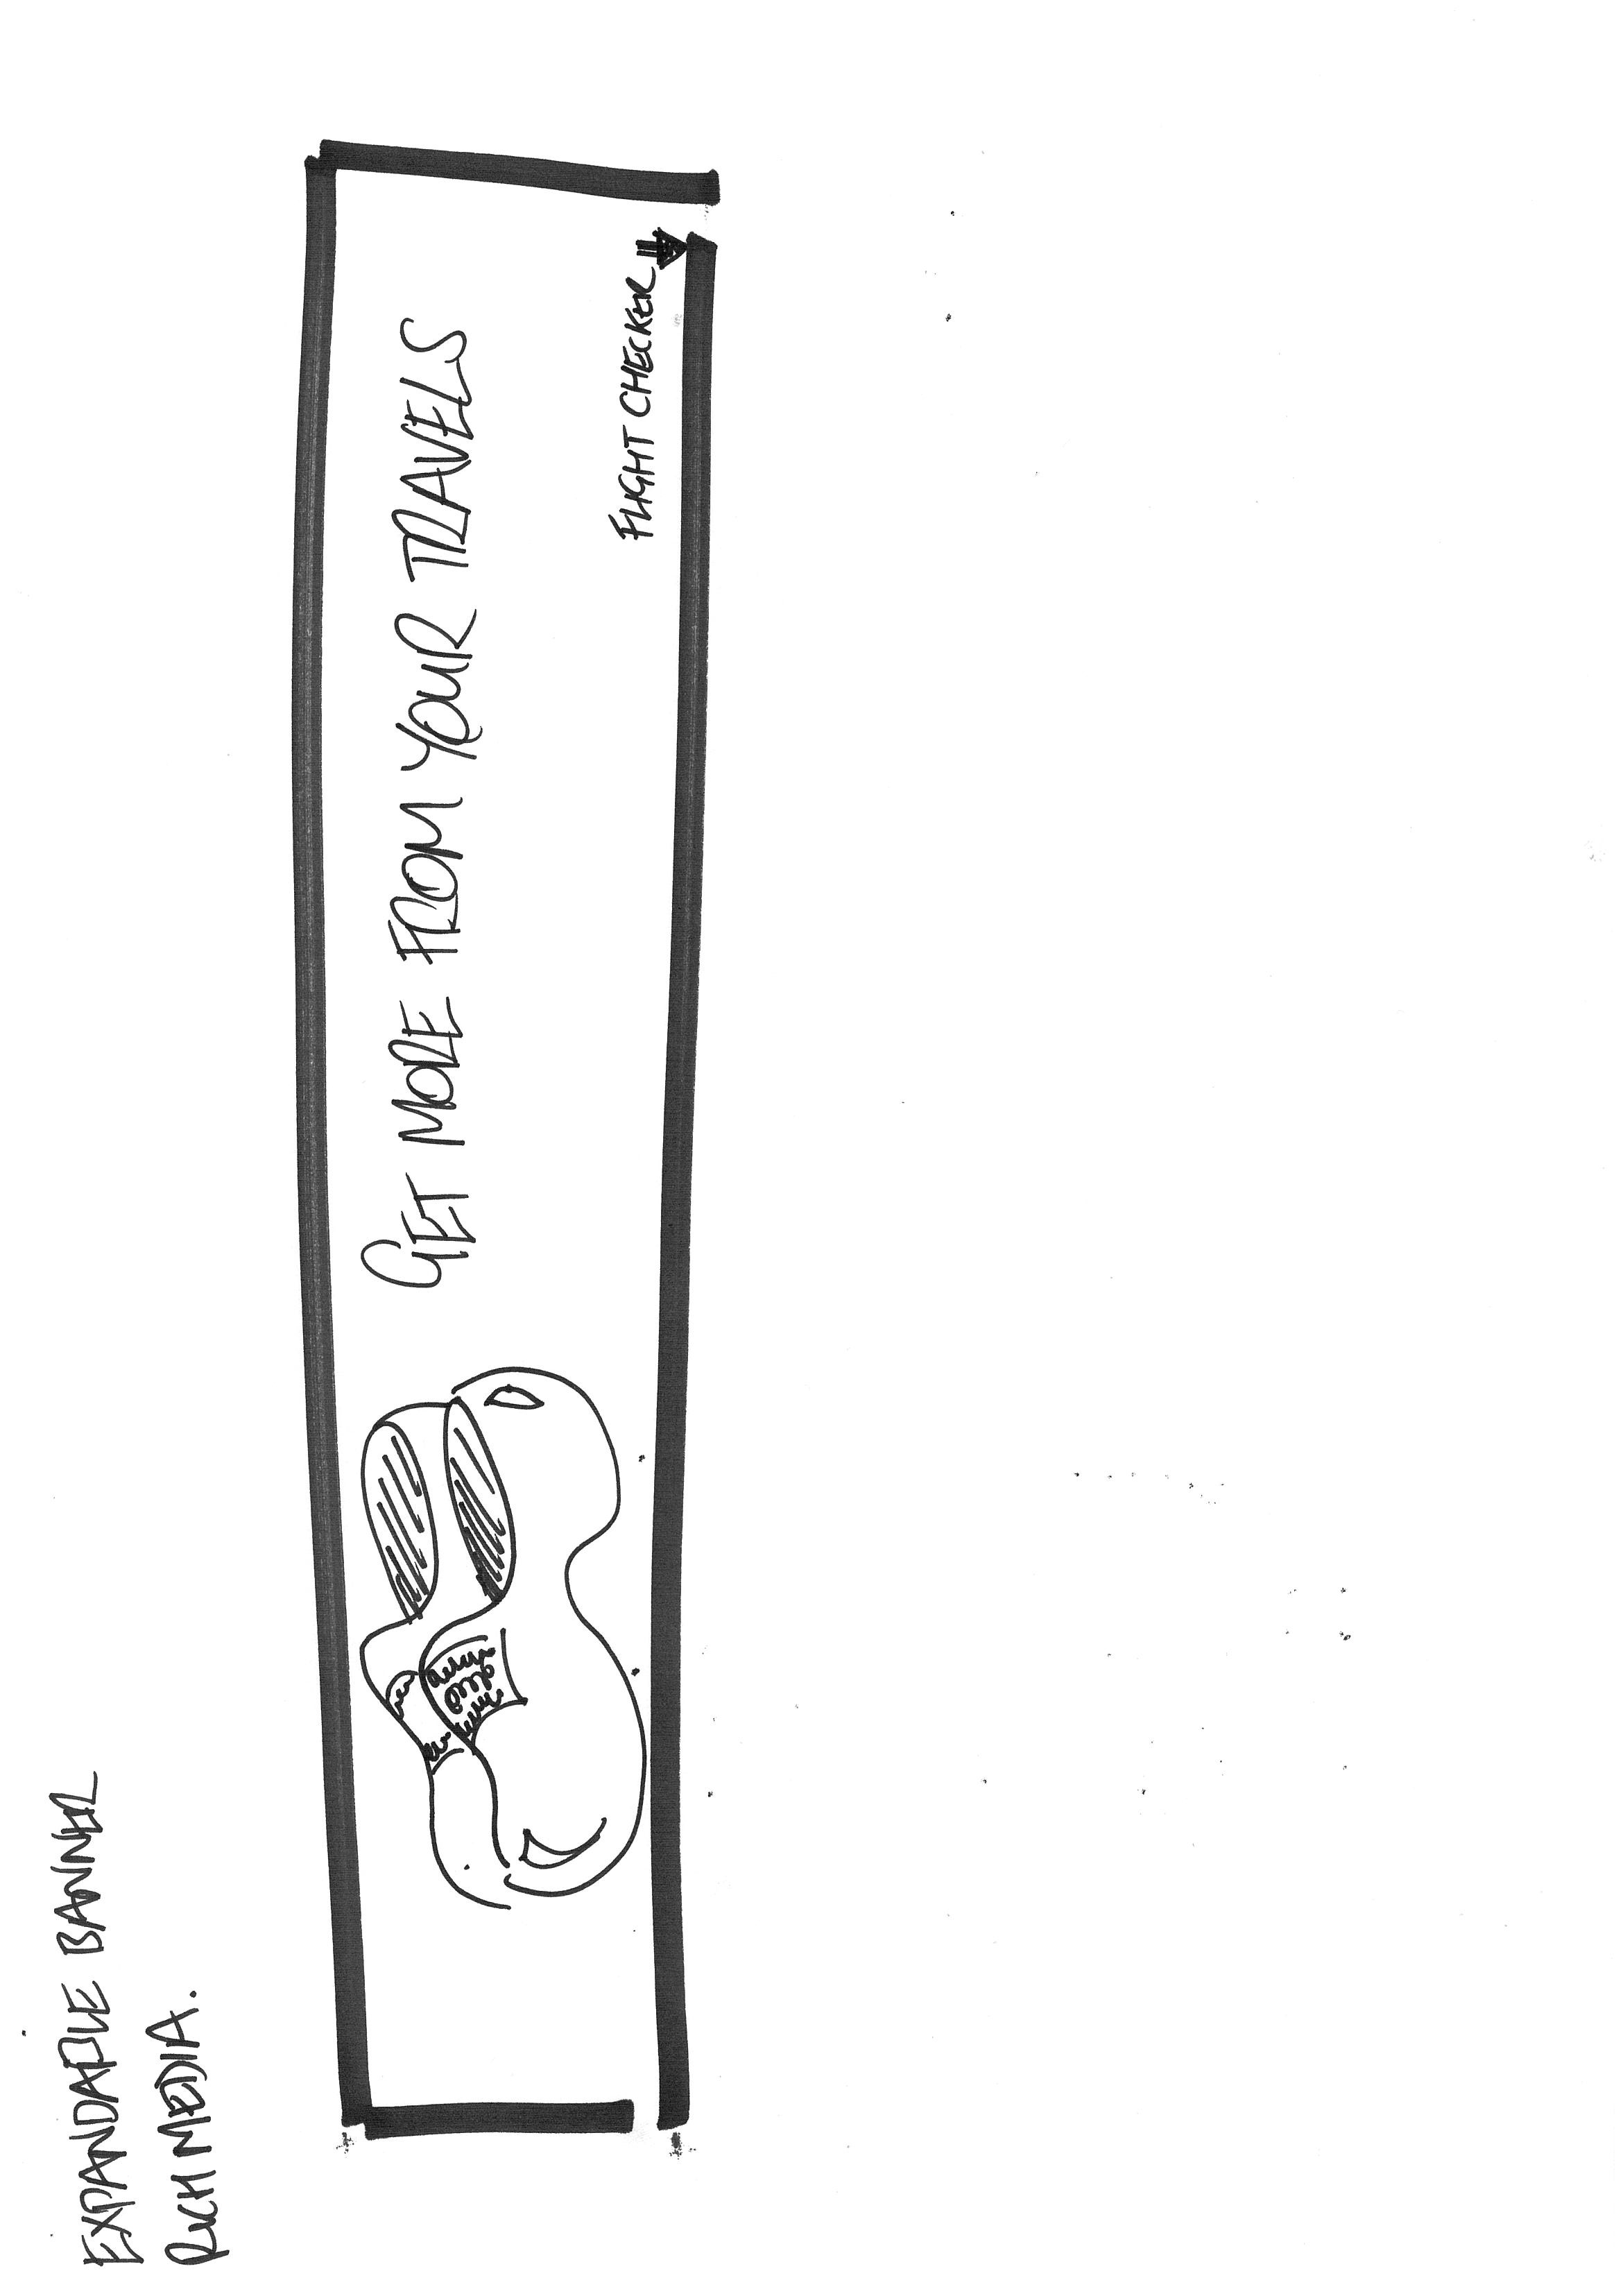 EXPANDABLE BANNER
RICH MEDIA.
GET MORE FROM YOUR TRAVELS
FLIGHT CHECKER